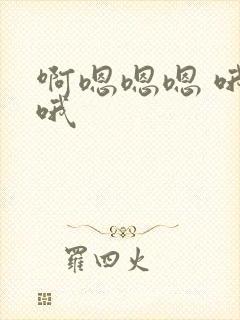 啊嗯嗯嗯 哦
哦
羅四火